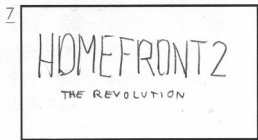 7
HOMEFRONT 2
THE REVOLUTION